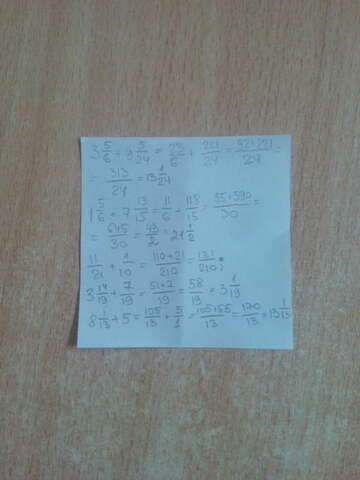 3 5/6 + 9 5/24 = 23/6 + 221/24 = (92+221)/24 =
= 313/24 = 13 1/24
1 5/6 + 7 13/15 = 11/6 + 118/15 = (55+590)/30 =
= 645/30 = 43/2 = 21 1/2
11/21 + 1/10 = (110+21)/210 = 131/210;
+ 7/19 = (51+7)/19 = 58/19 = 3 1/19
8 1/13 + 5 = 105/13 + 5/1 = (105+65)/13 = 170/13 = 13 1/13